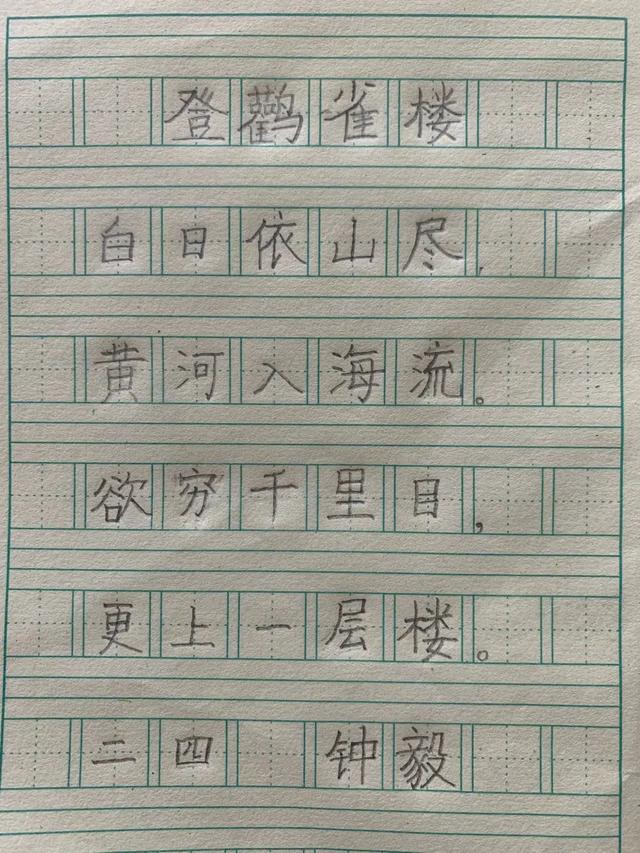 登鹳雀楼
白日依山尽,
黄河入海流。
欲穷千里目,
更上一层楼。
二四 钟毅